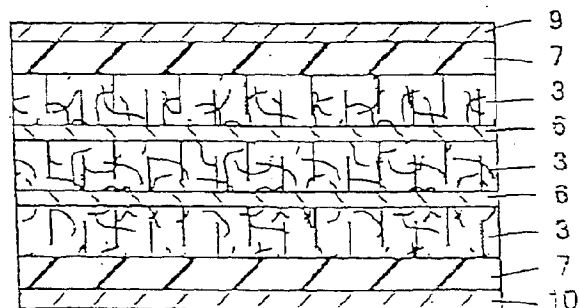 9
7
3
6
3
6
3
7
10